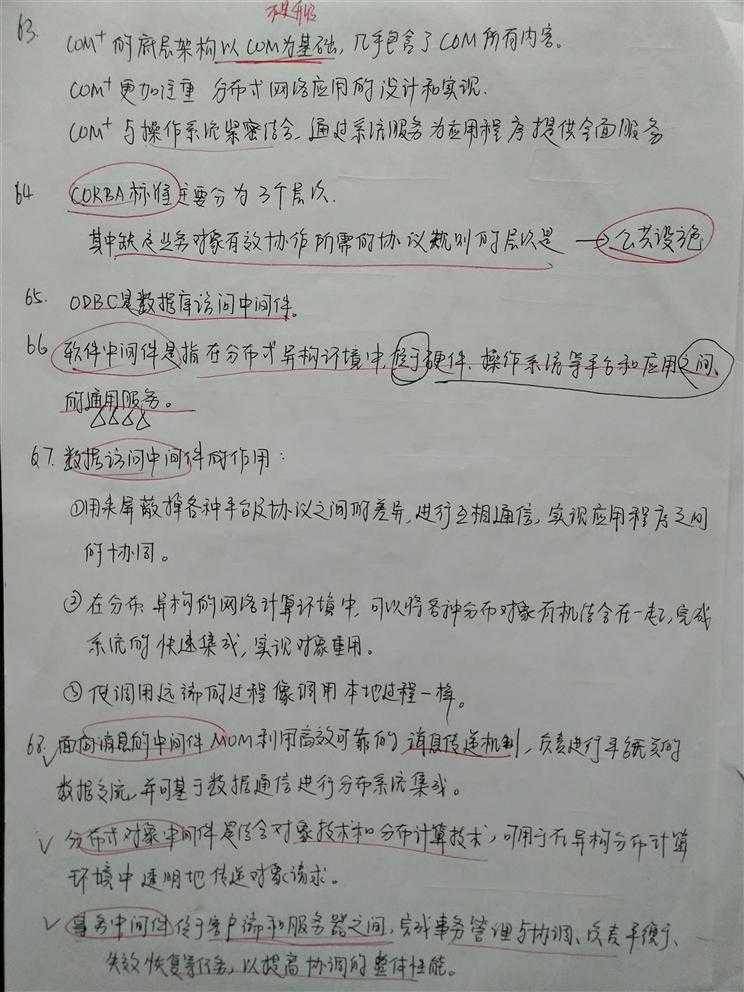 不是升级
63. COM+ 的底层架构以COM为基础，几乎包含了COM所有内容。
COM+ 更加注重 分布式网络应用的设计和实现.
COM+ 与操作系统紧密结合，通过系统服务为应用程序提供全面服务
64 CORBA标准主要分为3个层次.
其中缺定业务对象有效协作所需的协议规则的层次是 → 公共设施
65. ODBC是数据库访问中间件。
66 软件中间件是指在分布式异构环境中，位于硬件、操作系统等平台和应用之间、
的通用服务。
67. 数据访问中间件的作用：
①用来屏蔽掉各种平台及协议之间的差异，进行互相通信，实现应用程序之间
的协同。
②在分布、异构的网络计算环境中，可以将各种分布对象有机结合在一起，完成
系统的快速集成，实现对象重用。
③使调用远端的过程像调用本地过程一样。
68. 面向消息的中间件 MOM利用高效可靠的 消息传递机制，负责进行平台无关的
数据交流，并可基于数据通信进行分布系统集成。
✓ 分布式对象中间件是结合对象技术和分布计算技术，可用于在异构分布计算
环境中透明地传递对象请求。
✓ 事务中间件位于客户端和服务器之间，完成事务管理与协调、负责平衡、
失效恢复等任务，以提高协调的整体性能。